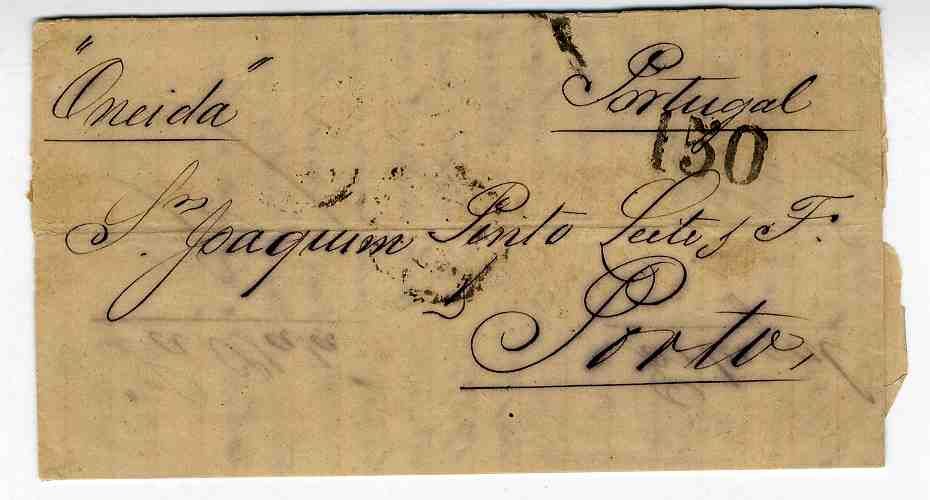 "Oneida"
Portugal
150
Snr. Joaquim Pinto Leite, F.
Porto,